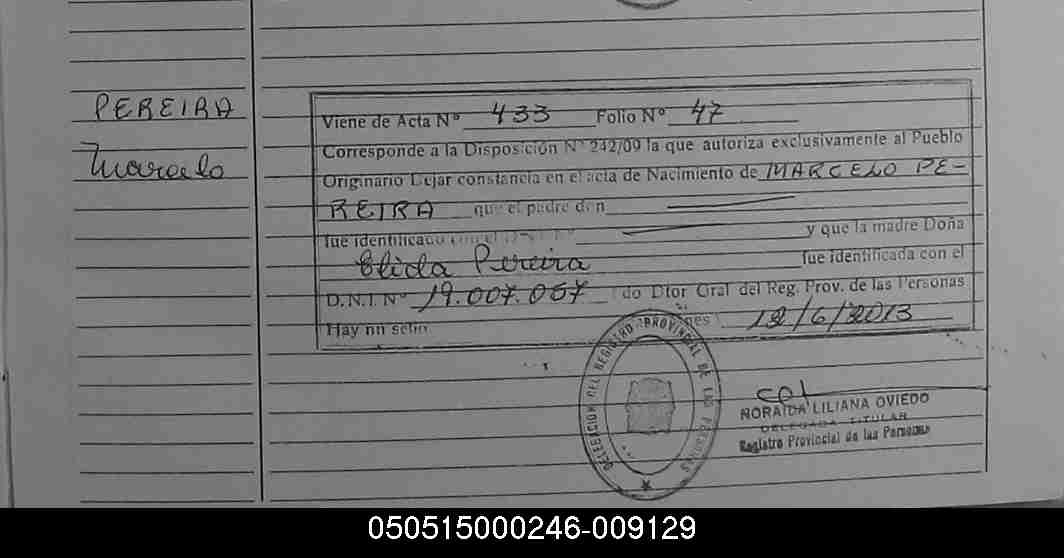 PEREIRA
Marcelo
Viene de Acta Nº 433 Folio Nº 47
Corresponde a la Disposición Nº 242/09 la que autoriza exclusivamente al Pueblo
Originario Dejar constancia en el acta de Nacimiento de MARCELO PE-
REIRA que el padre don
fue identificado con el D.N.I. Nº
y que la madre Doña
Elida Pereira fue identificada con el
D.N.I. Nº 19.007.067 do Dtor Gral del Reg. Prov. de las Personas
Hay un sello nes 12/6/2013
DELEGACION DEL REGISTRO PROVINCIAL DE LAS PERSONAS
NORAIDA LILIANA OVIEDO
DELEGADA TITULAR
Registro Provincial de las Personas
050515000246-009129